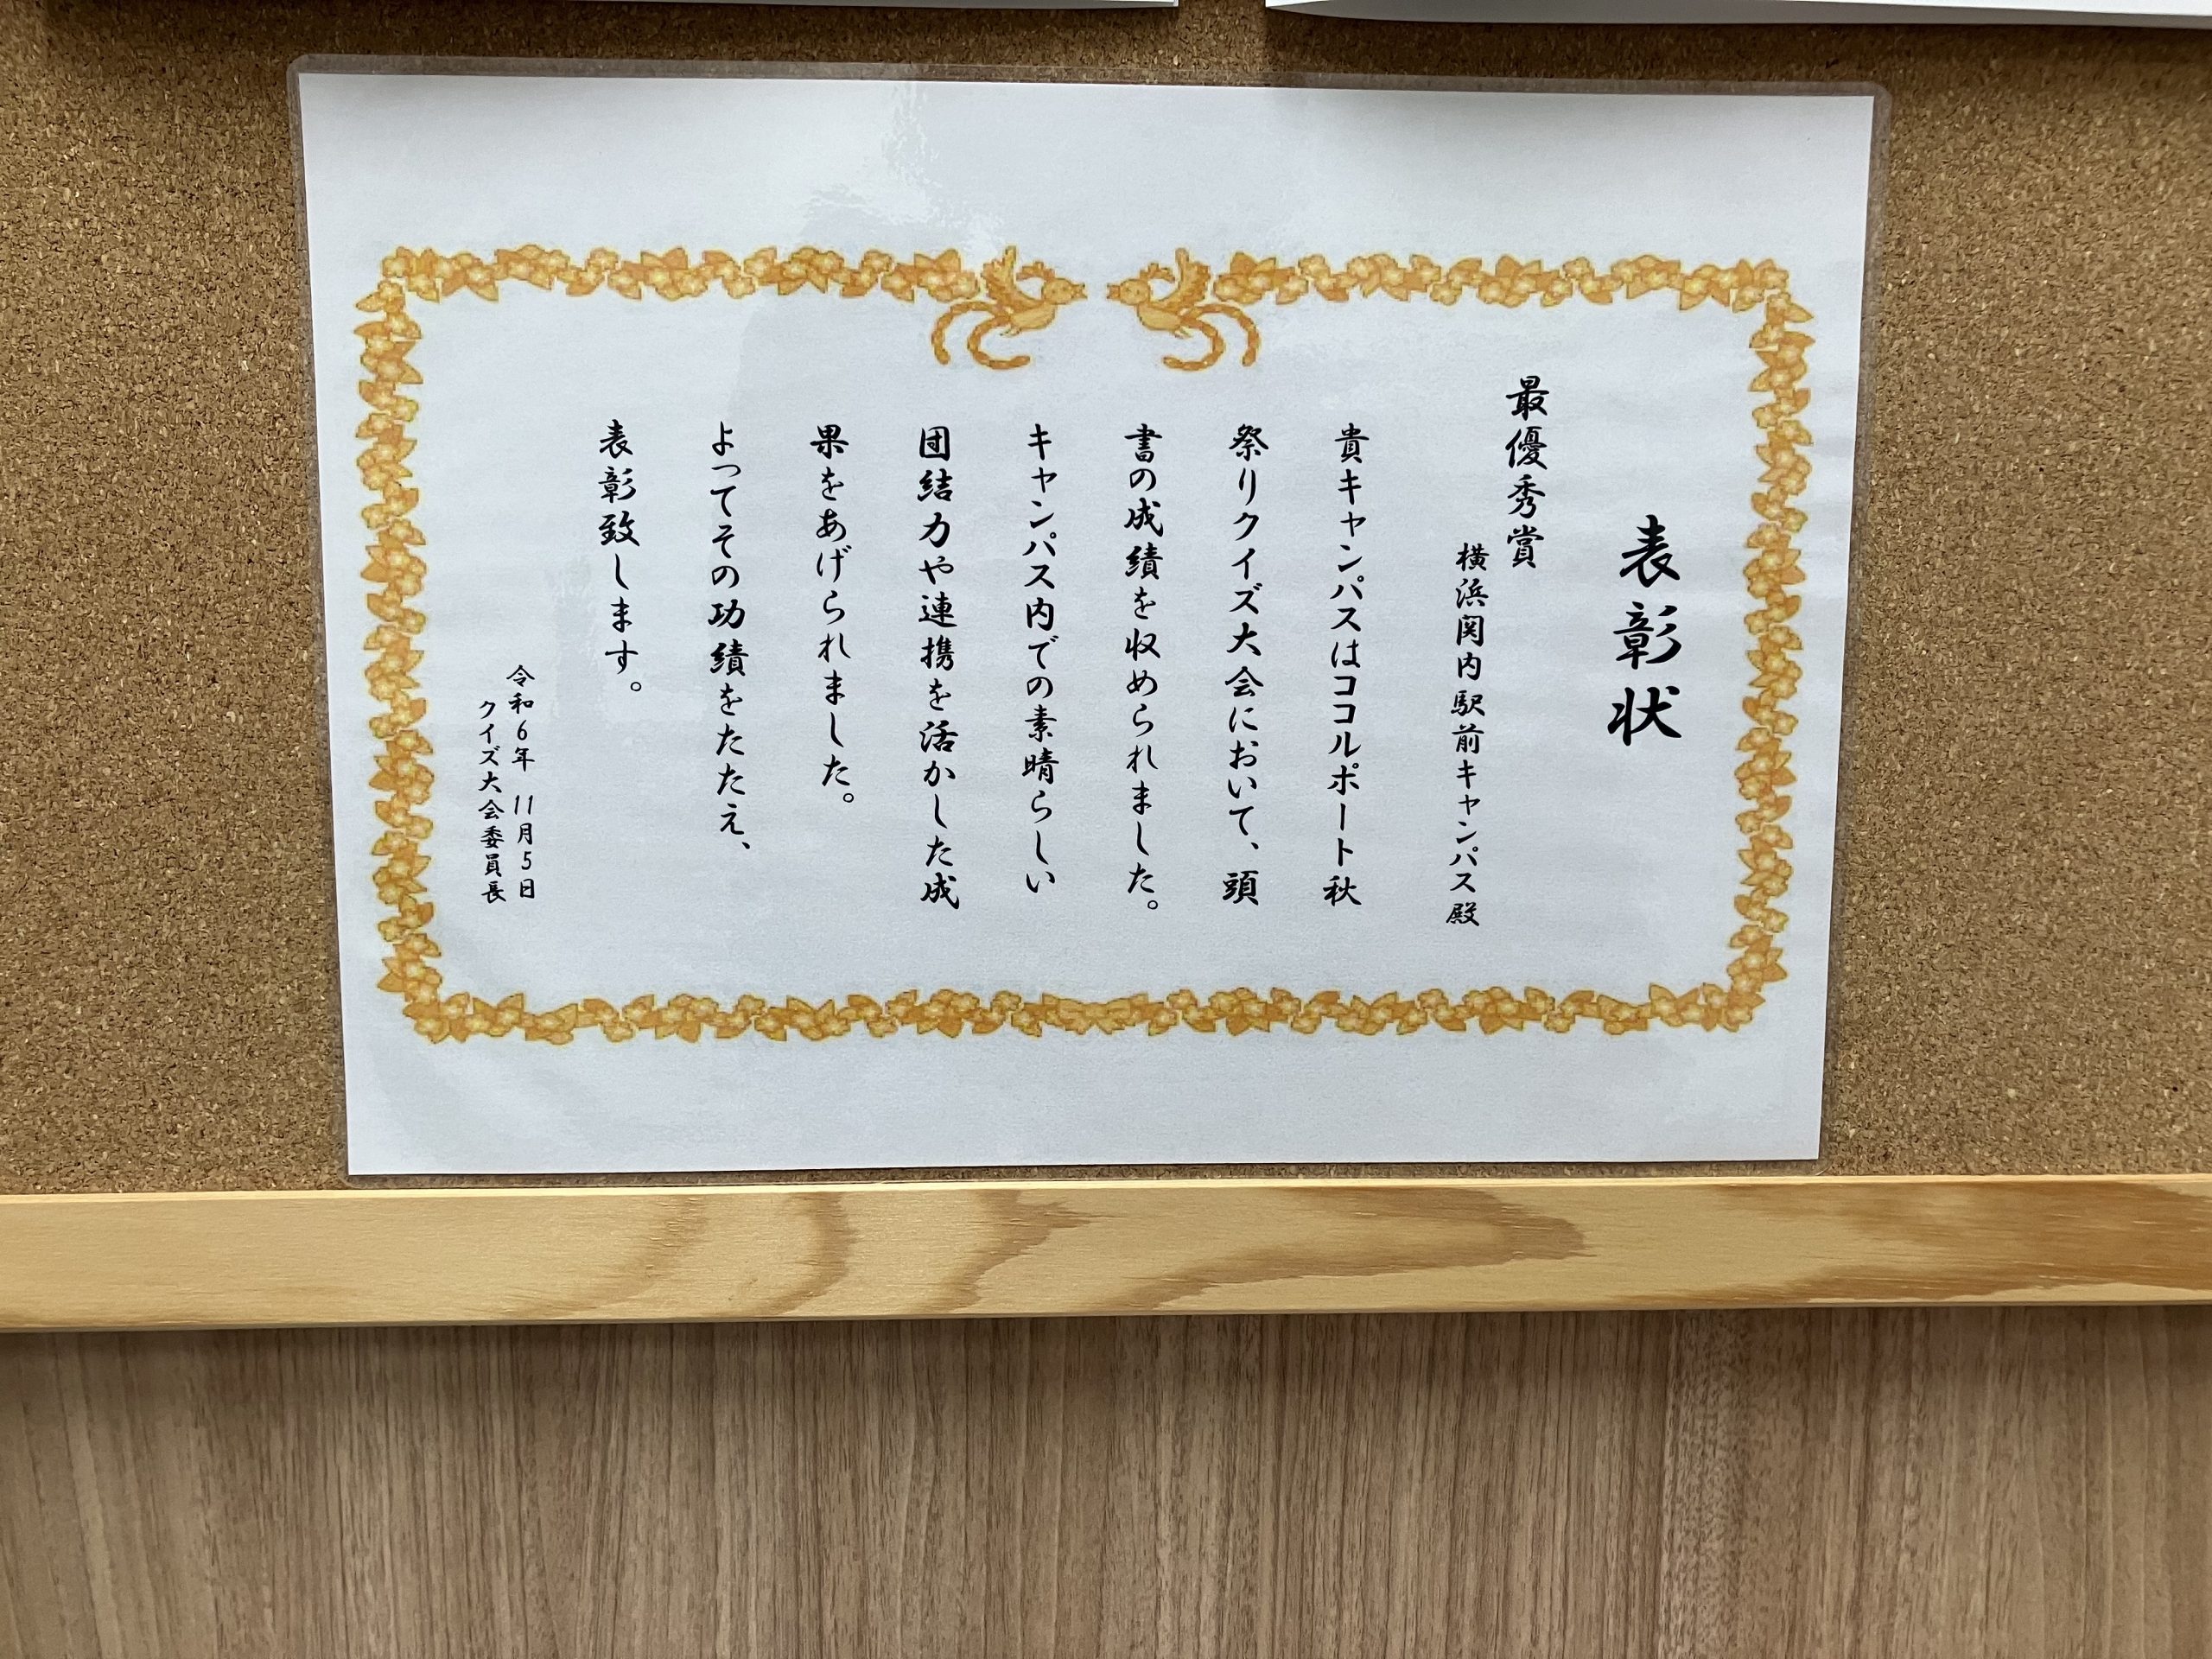 表彰状
最優秀賞
横浜関内駅前キャンパス殿
貴キャンパスはココルポート秋
祭りクイズ大会において、頭
書の成績を収められました。
キャンパス内での素晴らしい
団結力や連携を活かした成
果をあげられました。
よってその功績をたたえ、
表彰致します。
令和6年 11月5日
クイズ大会委員長